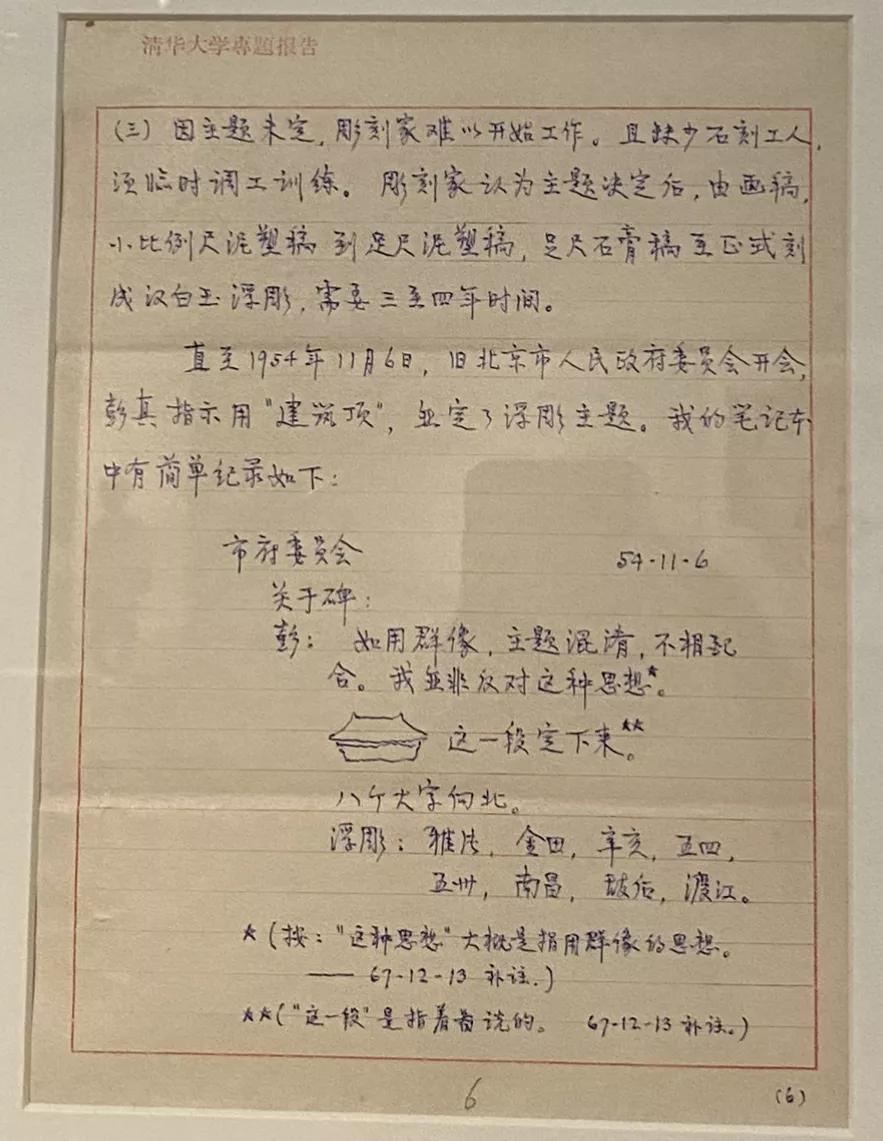 清华大学専題报告
(三) 因主题未定，彫刻家难以开始工作。且缺少石刻工人，
须临时调工训练。彫刻家认为主题决定后，由画稿，
小比例尺泥塑稿到足尺泥塑稿，足尺石膏稿至正式刻
成汉白玉浮彫，需要三至四年时间。
直至1954年11月6日，旧北京市人民政府委员会开会，
彭真指示用“建筑顶”，並定了浮彫主题。我的笔记本
中有简单纪录如下：
市府委员会 54-11-6
关于碑：
彭：如用群像，主题混淆，不相配
合。我並非反对这种思想*。
这一段定下来**。
八个大字向北。
浮彫：雅片，金田，辛亥，五四，
五卅，南昌，敌后，渡江。
★(按：“这种思想”大概是指用群像的思想。
—— 67-12-13 补注.)
★★(“这一段”是指着图说的。 67-12-13 补注。)
6
(6)